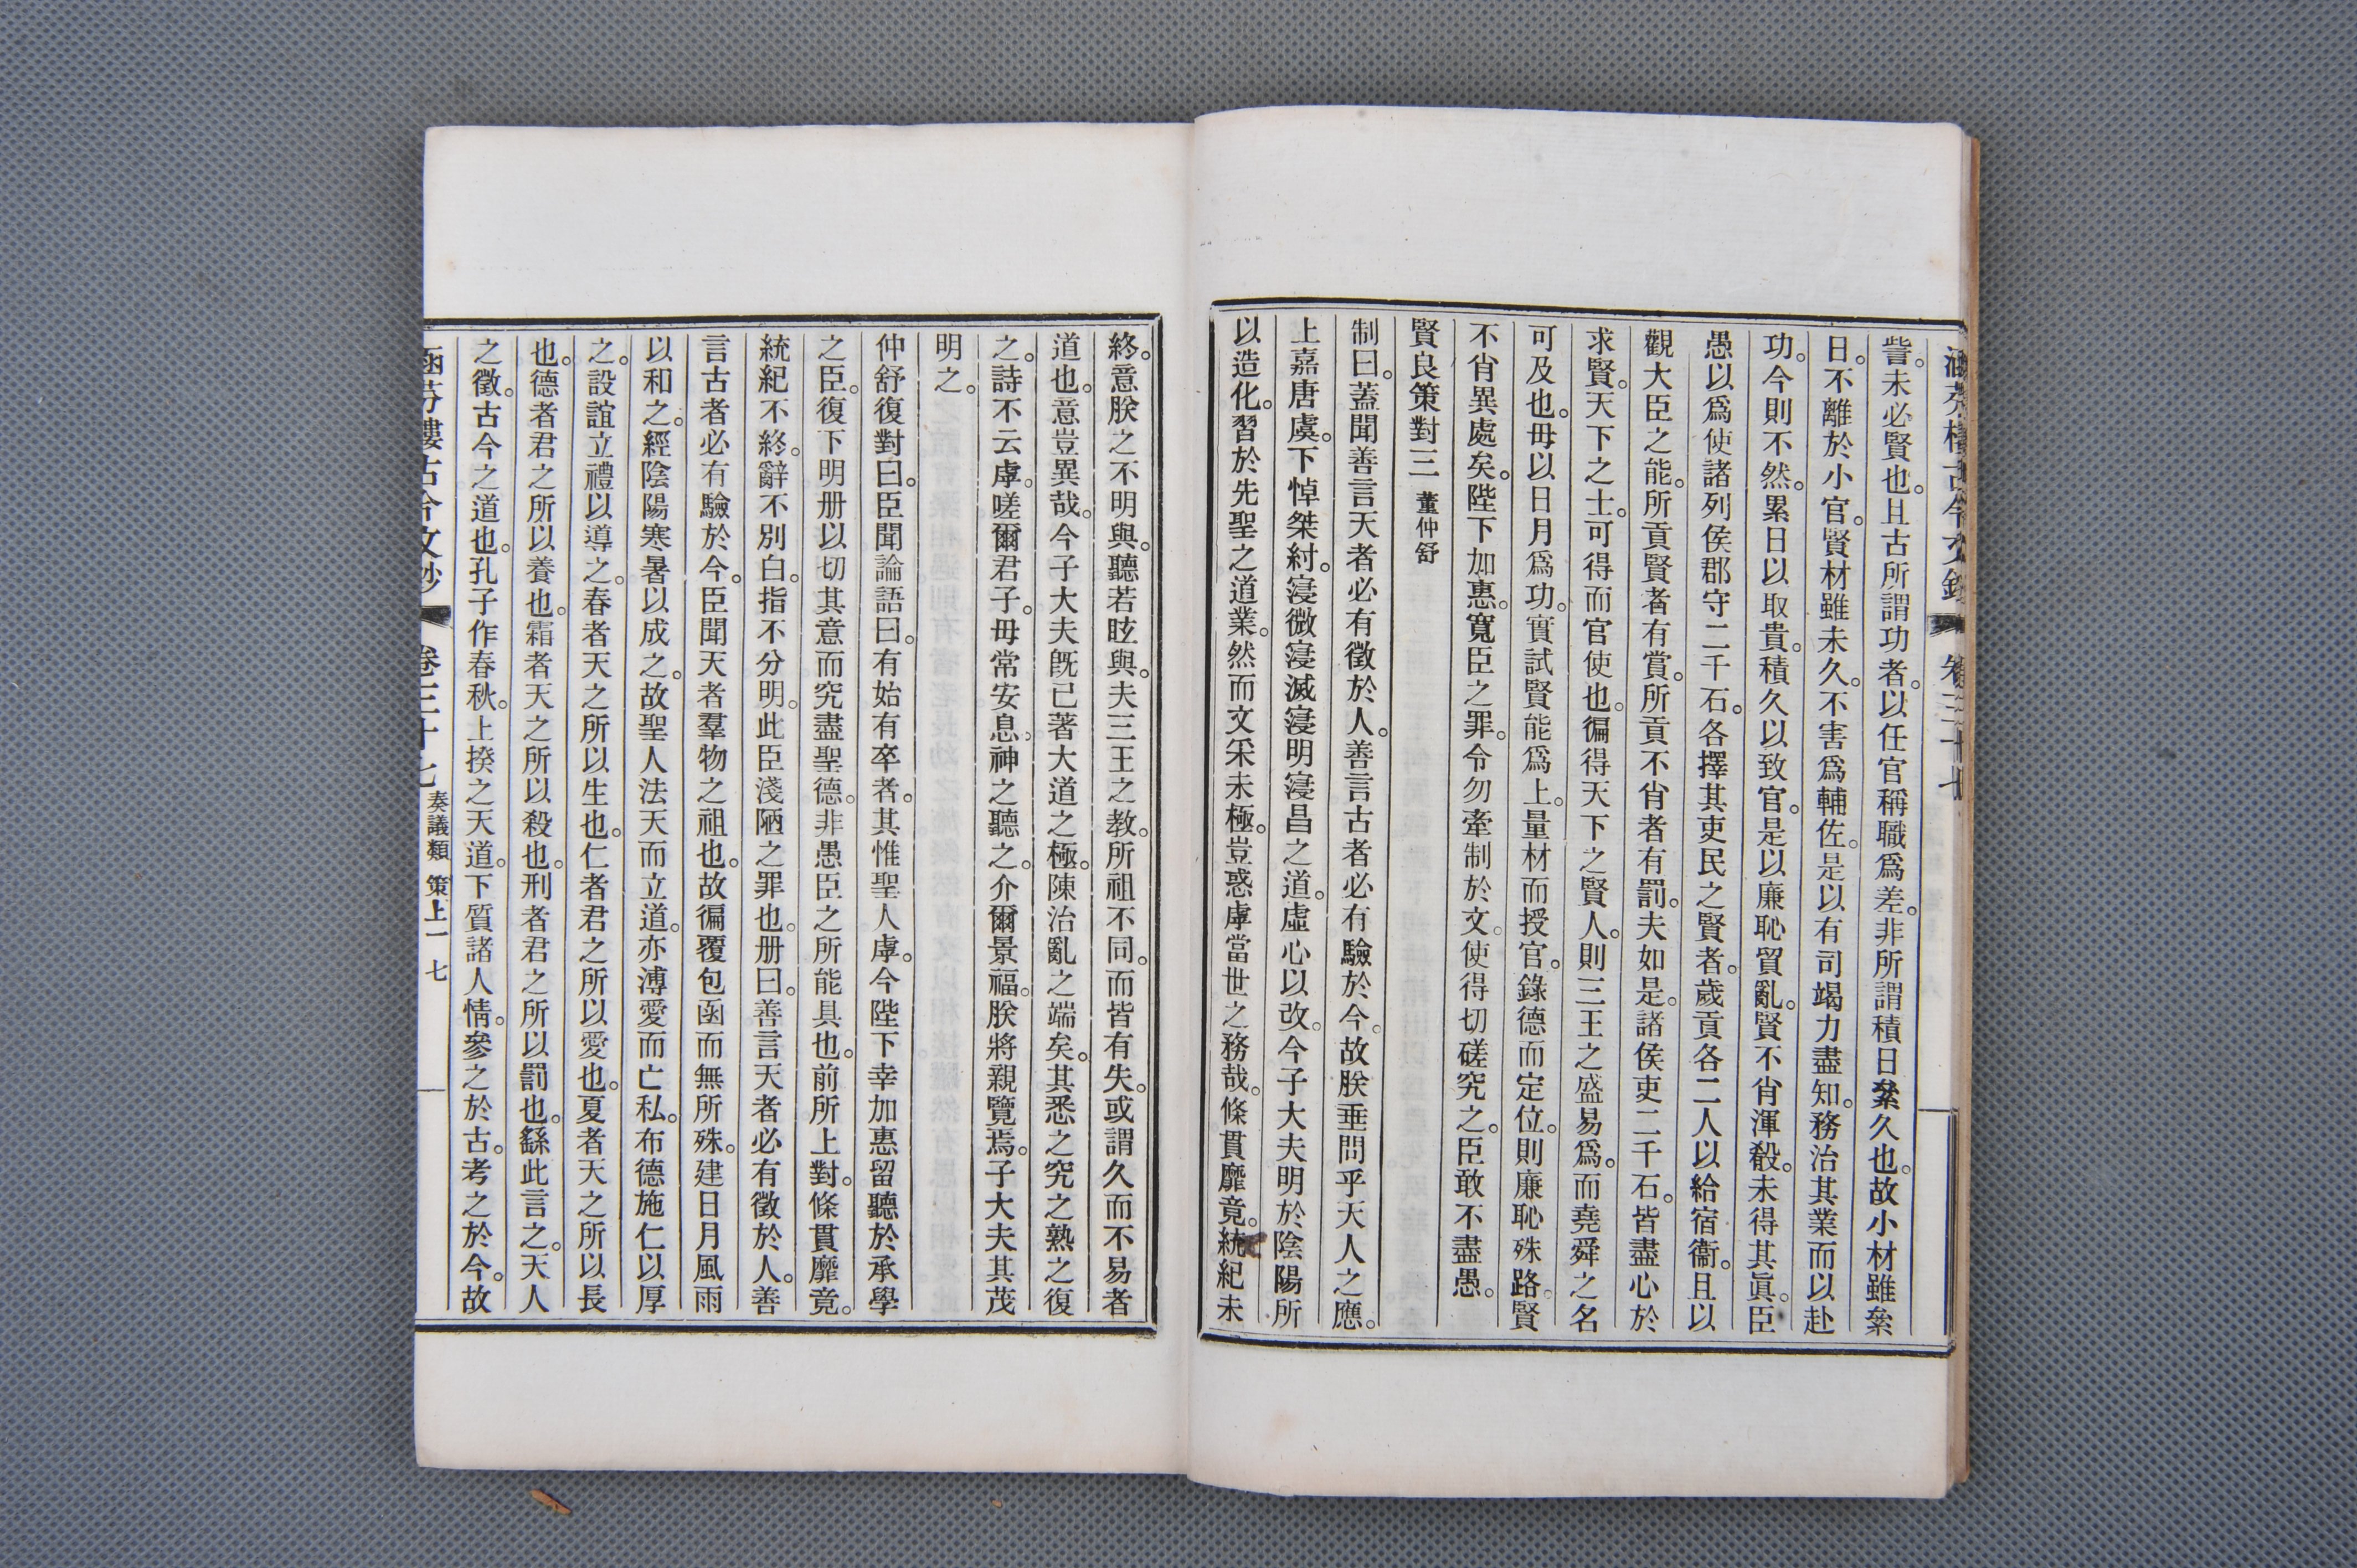 訾。未必賢也。且古所謂功者。以任官稱職爲差。非所謂積日絫久也。故小材雖絫
日。不離於小官。賢材雖未久。不害爲輔佐。是以有司竭力盡知。務治其業而以赴
功。今則不然。累日以取貴。積久以致官。是以廉恥貿亂。賢不肖渾殽。未得其眞。臣
愚以爲使諸列侯郡守二千石。各擇其吏民之賢者。歲貢各二人以給宿衞。且以
觀大臣之能。所貢賢者有賞。所貢不肖者有罰。夫如是。諸侯吏二千石。皆盡心於
求賢。天下之士。可得而官使也。徧得天下之賢人。則三王之盛易爲。而堯舜之名
可及也。毋以日月爲功。實試賢能爲上。量材而授官。錄德而定位。則廉恥殊路。賢
不肖異處矣。陛下加惠。寬臣之罪。令勿牽制於文。使得切磋究之。臣敢不盡愚。
賢良策對三 董仲舒
制曰。蓋聞善言天者必有徵於人。善言古者必有驗於今。故朕垂問乎天人之應。
上嘉唐虞。下悼桀紂。寖微寖滅寖明寖昌之道。虛心以改。今子大夫明於陰陽所
以造化。習於先聖之道業。然而文采未極。豈惑虖當世之務哉。條貫靡竟。統紀未
終。意朕之不明與。聽若眩與。夫三王之教。所祖不同。而皆有失。或謂久而不易者
道也。意豈異哉。今子大夫旣已著大道之極。陳治亂之端矣。其悉之究之。熟之復
之。詩不云虖。嗟爾君子。毋常安息。神之聽之。介爾景福。朕將親覽焉。子大夫其茂
明之。
仲舒復對曰。臣聞論語曰。有始有卒者。其惟聖人虖。今陛下幸加惠留聽於承學
之臣。復下明册以切其意而究盡聖德。非愚臣之所能具也。前所上對。條貫靡竟。
統紀不終。辭不別白。指不分明。此臣淺陋之罪也。册曰。善言天者必有徵於人。善
言古者必有驗於今。臣聞天者羣物之祖也。故徧覆包函而無所殊。建日月風雨
以和之。經陰陽寒暑以成之。故聖人法天而立道。亦溥愛而亡私。布德施仁以厚
之。設誼立禮以導之。春者天之所以生也。仁者君之所以愛也。夏者天之所以長
也。德者君之所以養也。霜者天之所以殺也。刑者君之所以罰也。繇此言之。天人
之徵。古今之道也。孔子作春秋。上揆之天道。下質諸人情。參之於古。考之於今。故
涵芬樓古今文鈔 卷三十七 奏議類 策上一 七